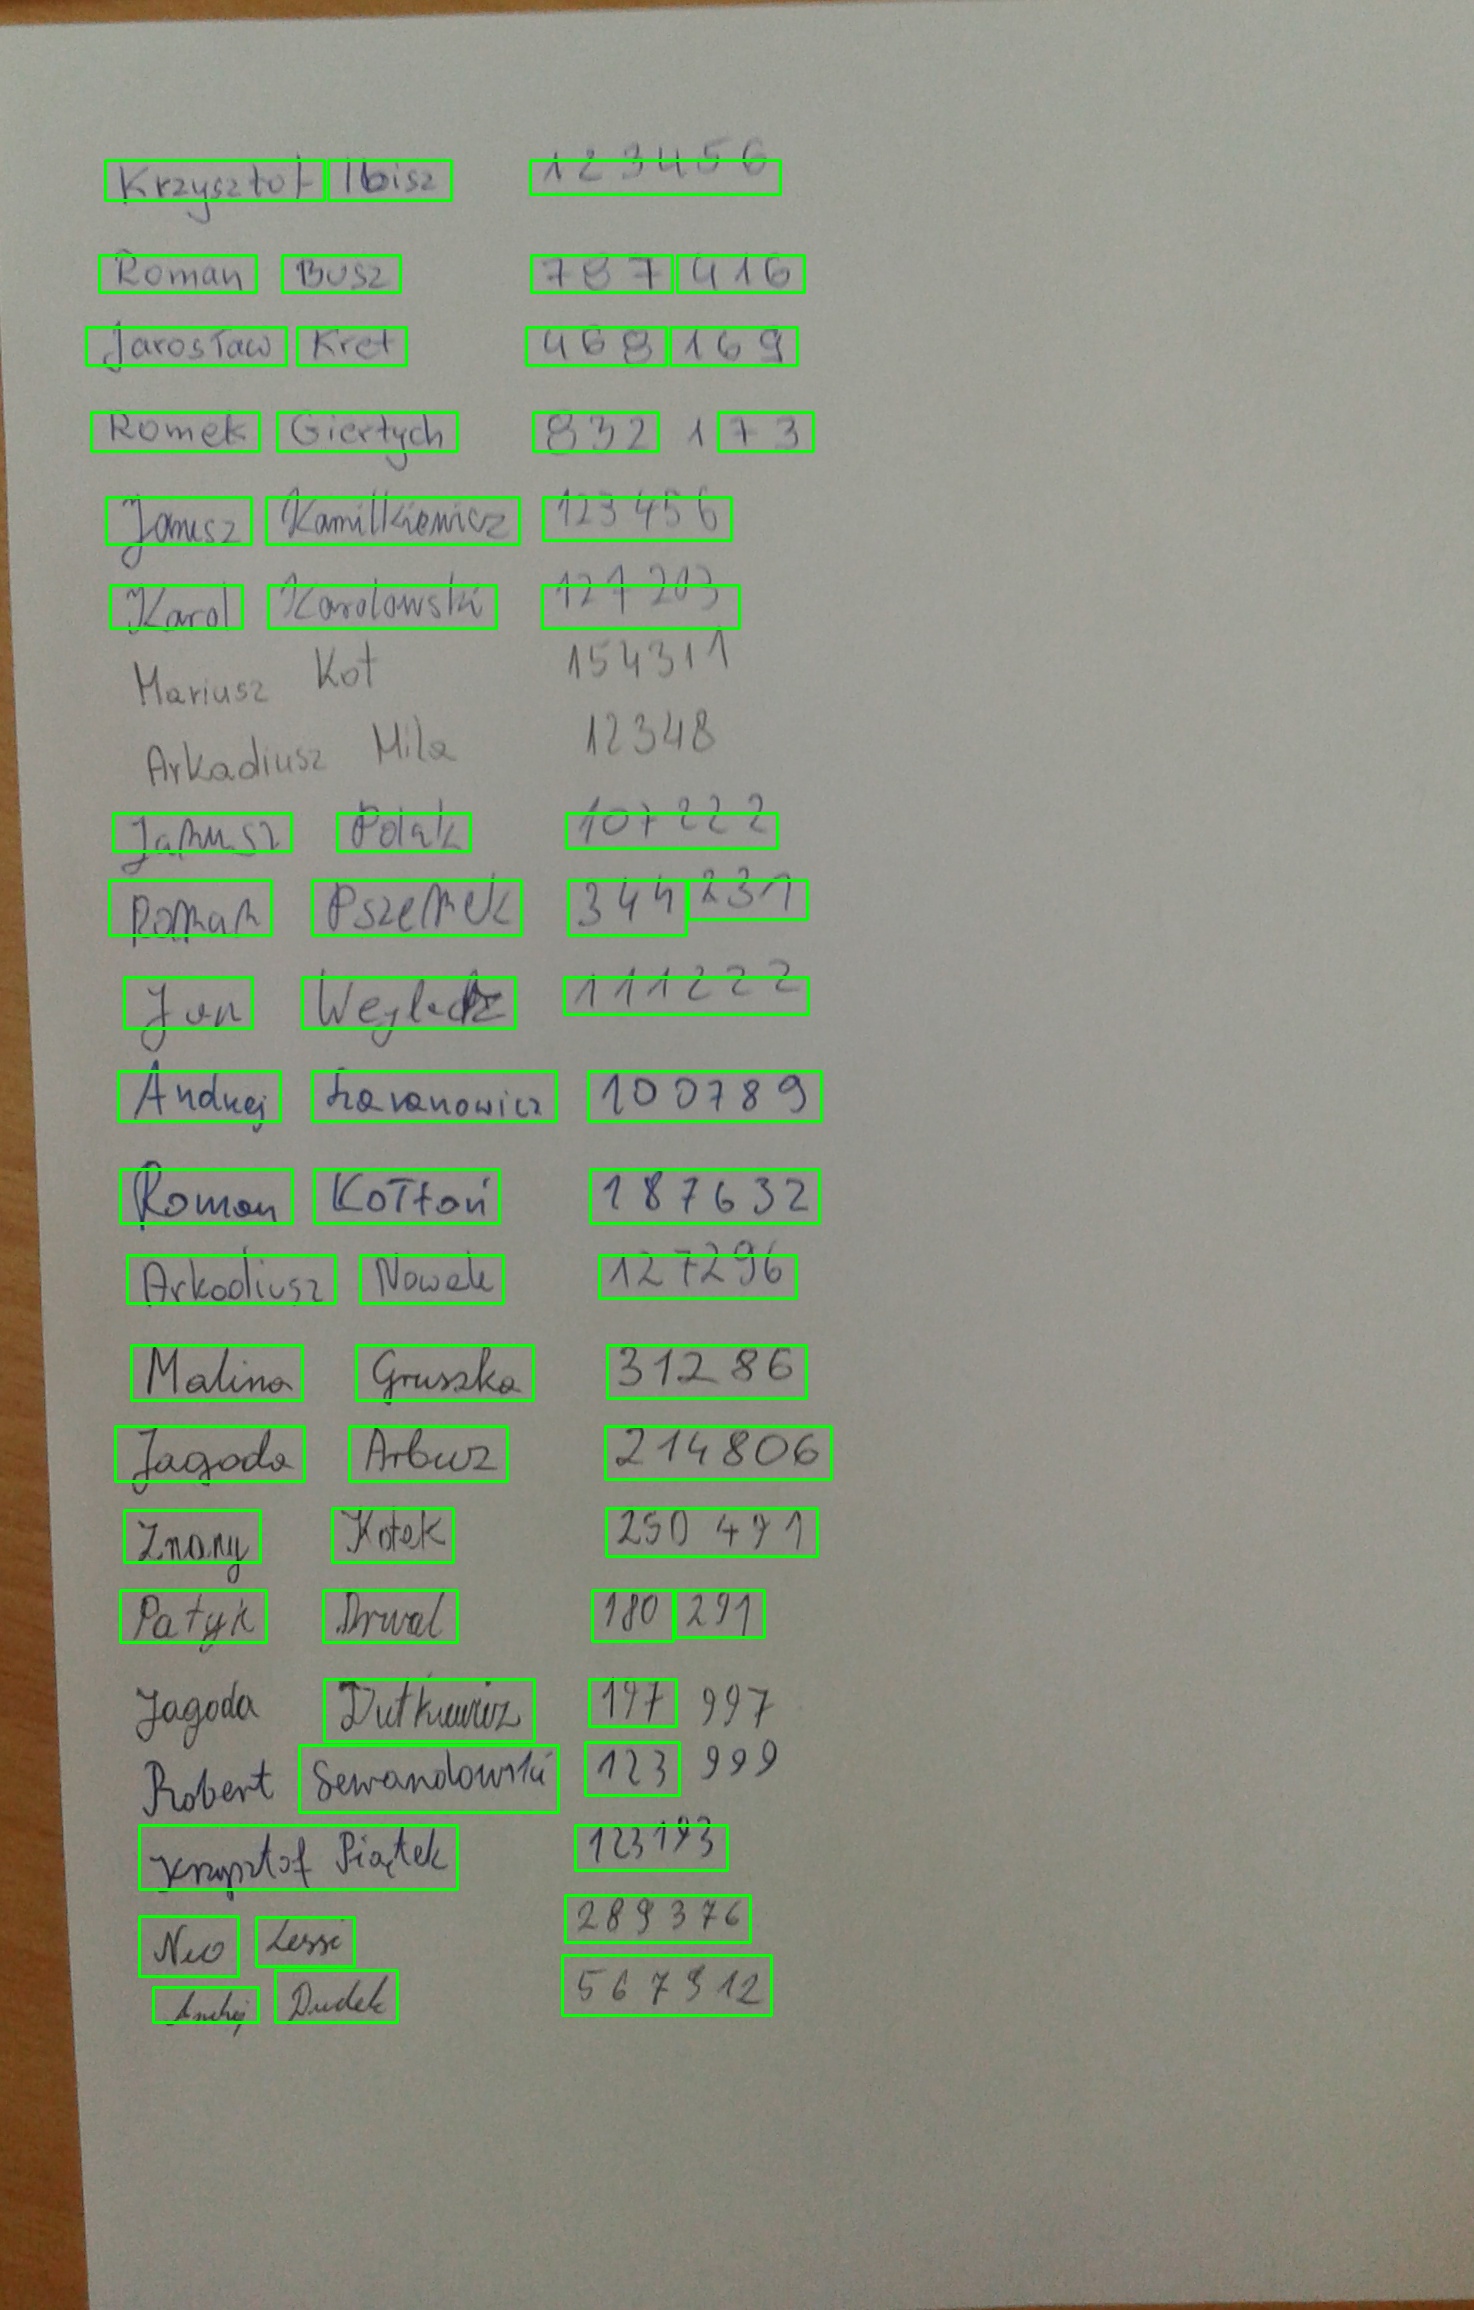 Krzysztof Ibisz 123456
Roman Busz 787 416
Jarosław Kret 468 169
Romek Giertych 832 173
Janusz Kamilkiewicz 123456
Karol Karolowski 127203
Mariusz Kot 154311
Arkadiusz Mila 12348
Janusz Polak 107222
Roman Pszemek 344 231
Jan 111222
Andrzej 100789
Roman Kołtoń 187632
Arkadiusz Nowak 127296
Malina Gruszka 31286
Jagoda Arbuz 214806
Znany Kotek 250 471
Patyk Drwal 180 291
Jagoda Dutkiewicz 197 997
Robert Lewandowski 123 999
Krzysztof Piątek 123193
Neo Lessi 289376
Andrzej Dudek 567912